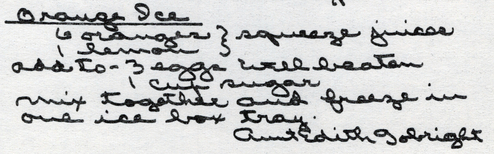 Orange Ice
6 oranges } squeeze juices
1 lemon }
add to - 3 eggs well beaten
1 cup sugar
mix together and freeze in
one ice box tray.
Aunt Edith Gobright